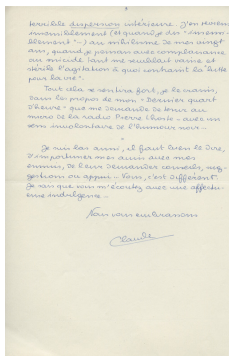 terrible dispersion intérieure. J'en reviens
insensiblement (et quand je dis "insensi-
blement"-) au nihilisme de mes vingt
ans, quand je pensais avec complaisance
au suicide tant me semblait vaine et
stérile l'agitation à quoi contraint la "lutte
pour la vie".
Tout cela se sentira fort, je le crains,
dans les propos de mon "Dernier quart
d'heure" que me demande de tenir au
micro de la radio Pierre Lhoste - avec un
sens involontaire de l'humour noir -
Je suis las aussi, il faut bien le dire,
d'importuner mes amis avec mes
ennuis, de leur demander conseils, sug-
gestions ou appui - Vous, c'est différent.
Je sais que vous m'écoutez avec une affectu-
euse indulgence -
Nous vous embrassons
Claude